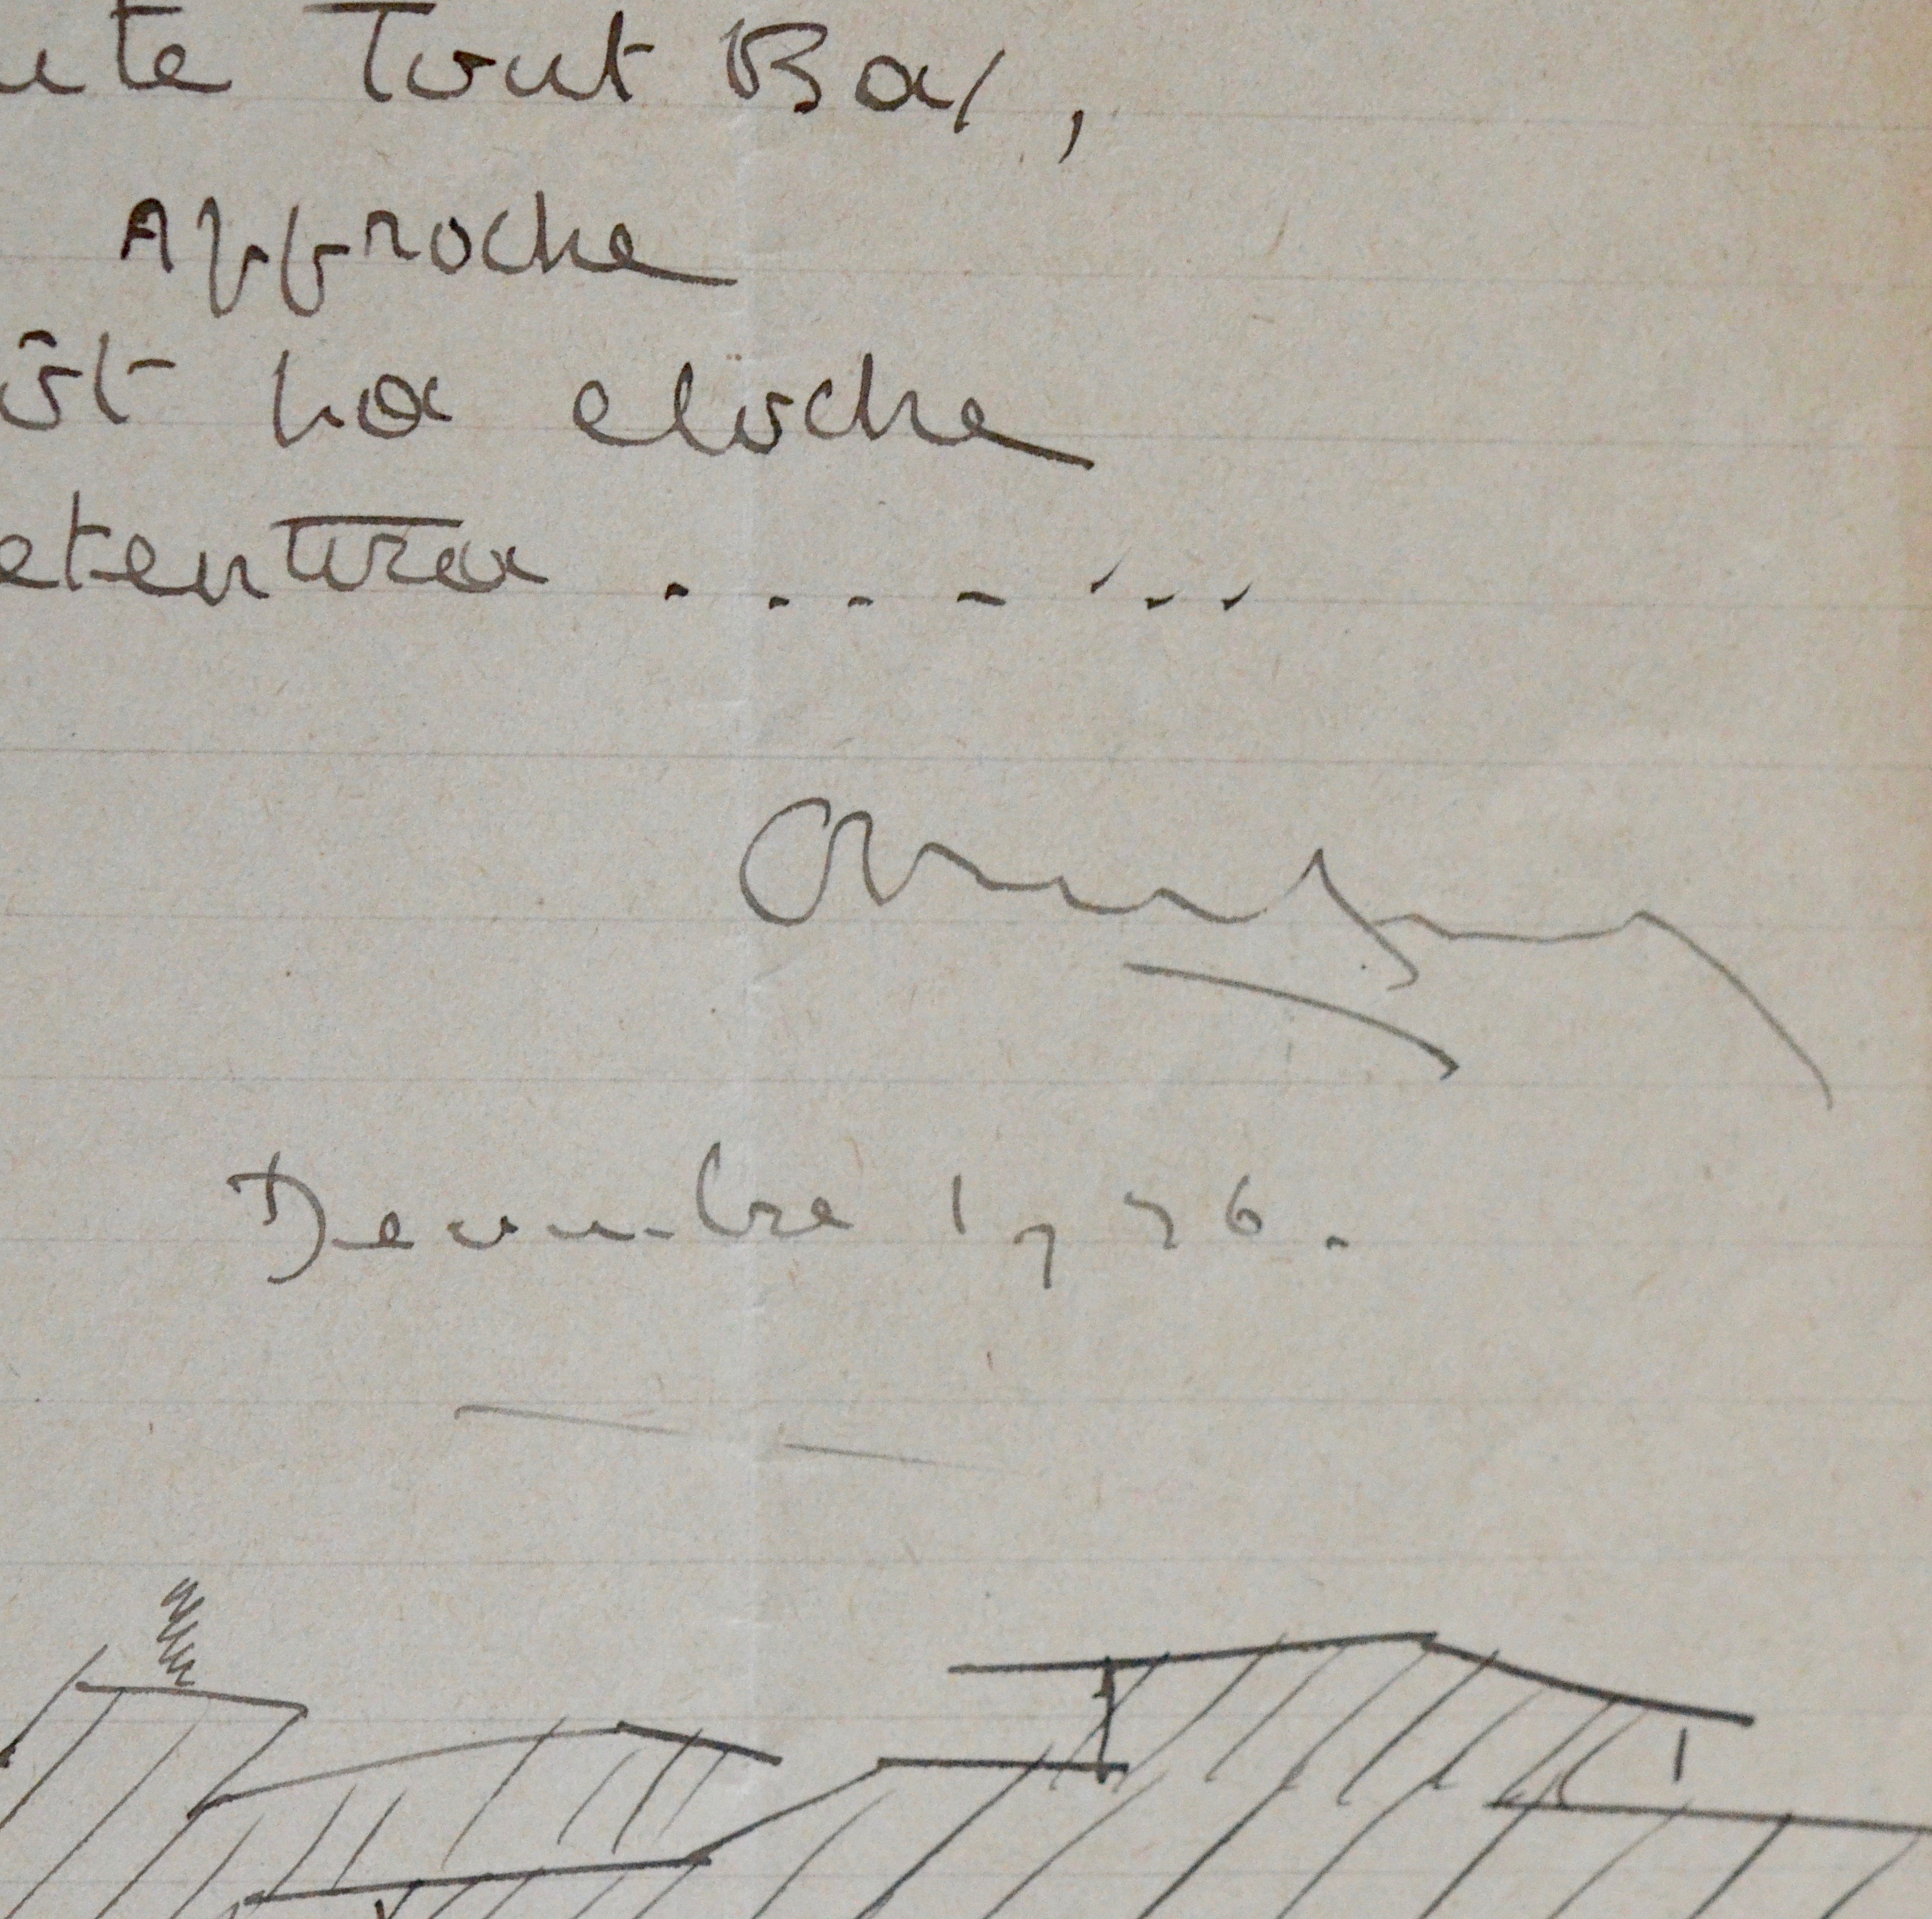 ute Tout Bas,
Approche
ôt la cloche
etentira . . . . . . .
Decembre 1946.